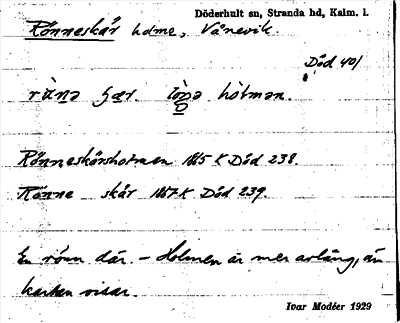 Döderhult sn, Stranda hd, Kalm. l.
Rönneskär holme, Vånevik.
Död 401
Rönneskärsholmen 1865 K Död 238.
Rönne skär 1867 K Död 239.
En rönn där. – Holmen är mer avlång, än
kartan visar.
Ivar Modéer 1929